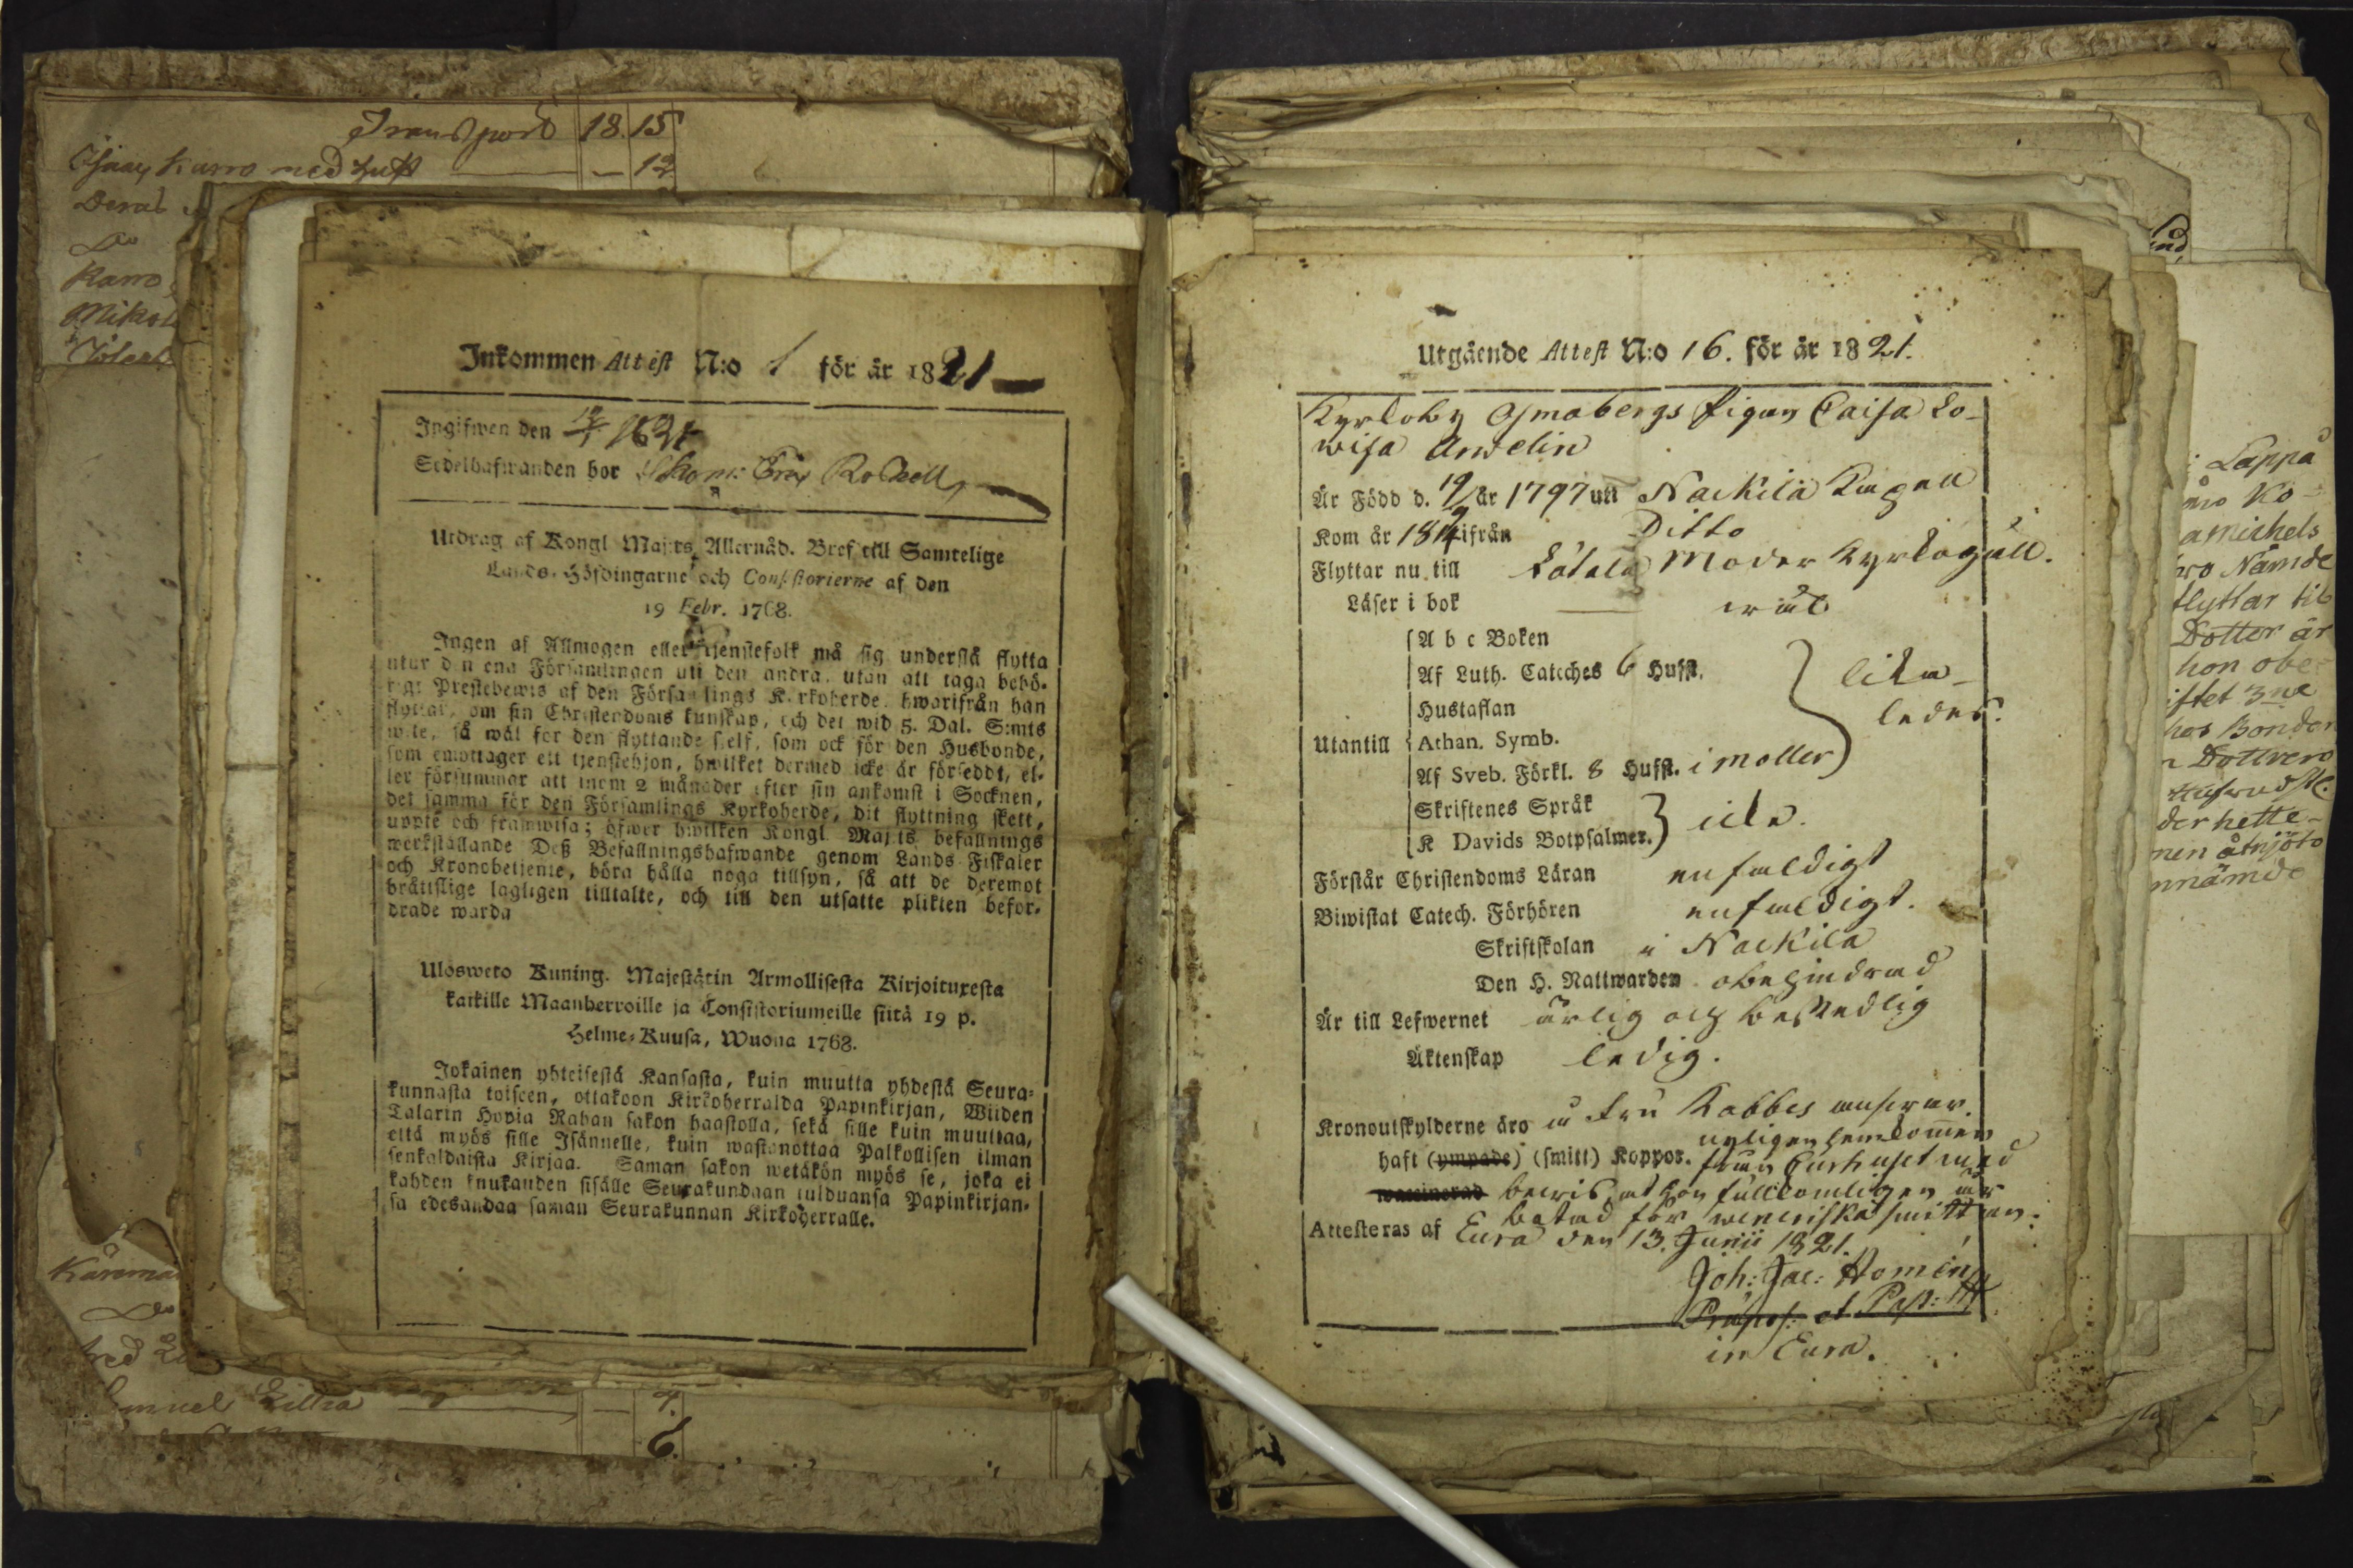 Transport 18. 15
Karro med – 12
Karro
Inkommen Attest N:o 1 för år 1821
Ingifwen den 1821
Sedelhafwanden bor
Utdrag af Kongl Maj:ts Allernåd. Bref till Samtelige
Lands-Höfdingarne och Consistorierne af den
19 Febr. 1768.
Ingen af Allmogen eller tjenstefolk må sig understå flytta
utur den ena Församlingen uti den andra, utan att taga behö-
rigt Prestebewis af den Församlings Kyrkoherde, hwarifrån han
flyttar, om sin Christendoms kunskap, och det wid 5. Dal. S:mts
wite, så wäl för den flyttande sjelf, som ock för den Husbonde,
som emottager ett tjenstehjon, hwilket dermed icke är försedt, el-
ler försummar att inom 2 månader efter sin ankomst i Socknen,
det samma för den Församlings Kyrkoherde, dit flyttning skett,
uppte och framwisa; öfwer hwilken Kongl. Maj:ts befallnings
werkställande Deß Befallningshafwande genom Lands Fiskaler
och Kronobetjente, böra hålla noga tillsyn, så att de deremot
bråttslige lagligen tilltalte, och till den utsatte plikten befor-
drade warda
Ulosweto Kuning. Majestätin Armollisesta Kirjoituxesta
kaikille Maanherroille ja Consistoriumeille siitä 19 p.
Helme-Kuusa, Wuona 1768.
Jokainen yhteisestä Kansasta, kuin muutta yhdestä Seura-
kunnasta toiseen, ottakoon Kirkoherralda Papinkirjan, Wiiden
Talarin Hopia Rahan sakon haastolla, sekä sille kuin muuttaa,
että myös sille Isännelle, kuin wastanottaa Palkollisen ilman
senkaldaista Kirjaa. Saman sakon wetäkön myös se, joka ei
kahden knukauden sisälle Seurakundaan tulduansa Papinkirjan-
sa edesandaa saman Seurakunnan Kirkoherralle.
6.
Utgående Attest N:o 16. för år 1821.
Kyrkoby pigan Caisa Lo-
wisa Anwelin
Är Född d. 19/9 år 1797 uti Nackila
Kom år 1814 ifrån Ditto
Flyttar nu till Moder Kyrkogäll.
Läser i bok wäl
A b c Boken
Af Luth. Cateches 6 Hufst.
Hustaflan
Utantill Athan. Symb.
Af Sveb. Förkl. 8 Hufst. i moller
lika-
ledes.
Skriftenes Språk
K Davids Botpsalmer.
icke.
Förstår Christendoms Läran enfaldigt
Biwistat Catech. Förhören enfaldigt.
Skriftskolan i Nackila
Den H. Nattwarden obehindrad
Är till Lefwernet ärlig och beskedlig
Äktenskap ledig.
Kronoutskylderne äro å Fru Kabbes answar.
haft (ympade) (smitt) Koppor. nyligen hemkommen
från Curhuset med
waccinerad bewis, at hon fullkomligen är
botad för weneriska smittan.
Attesteras af Eura den 13. Junii 1821.
Joh: Jac:
Præpos: et Past:
in Eura.
Lappå
Ko-
amichels
Nämde
flyttar til
Dotter är
hon obe-
Bonden
der hette
nnämde